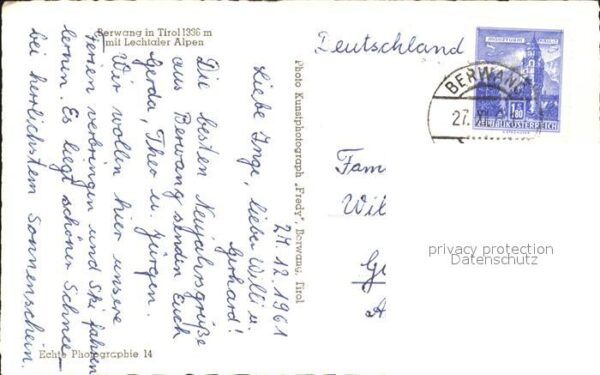 Berwang in Tirol 1336 m
mit Lechtaler Alpen
27.12.1961
Liebe Inge, lieber Willi u.
Gerhard!
Die besten Neujahrsgrüße
aus Berwang senden Euch
Gerda, Theo u. Jürgen.
Wir wollen hier unsere
Ferien verbringen und Ski fahren
lernen. Es liegt schöner Schnee
bei herrlichstem Sonnenschein.
Echte Photographie 14
Photo Kunstphotograph „Fredy", Berwang, Tirol
Deutschland
BERWANG
27.
1.80
REPUBLIK ÖSTERREICH
Fam
Wil
privacy protection
Datenschutz